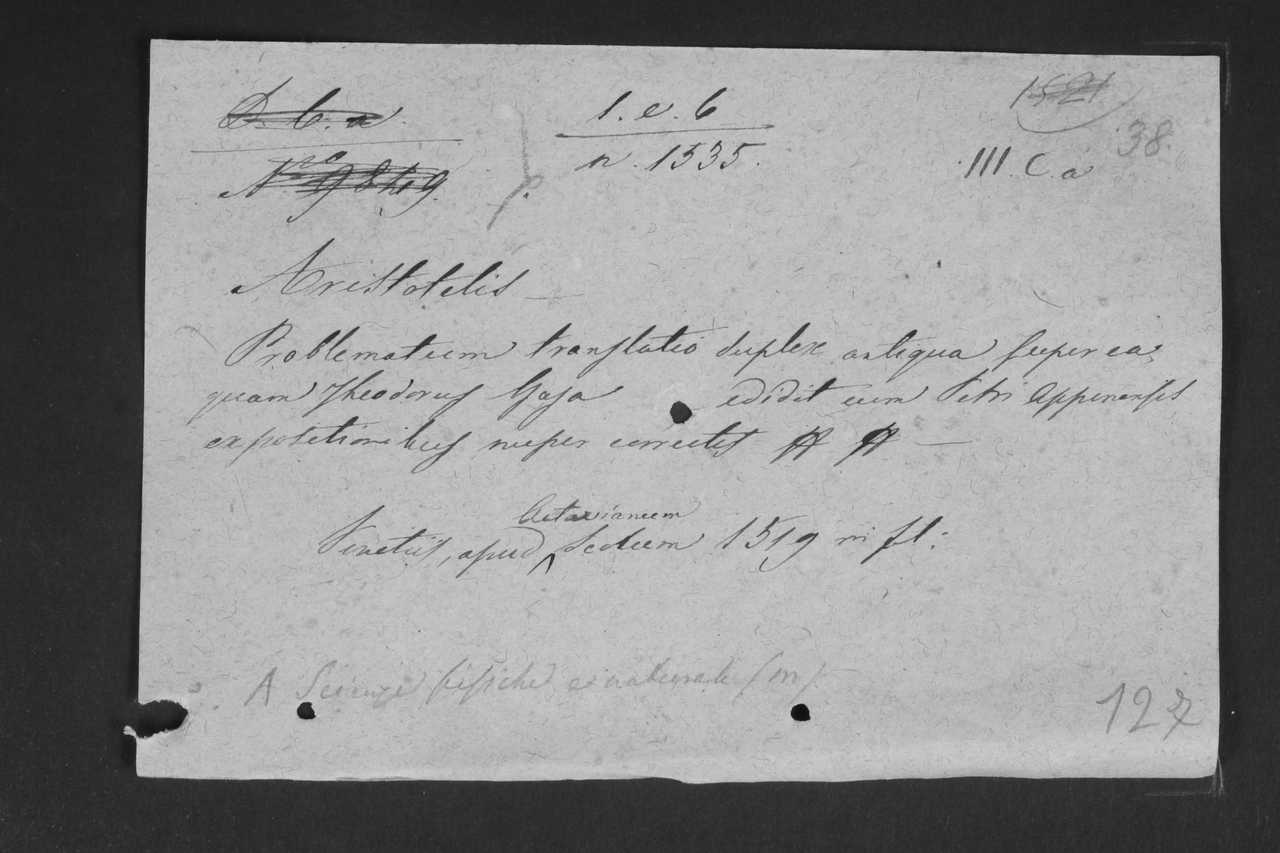 D. C. a
1. e. 6
1521
N.ro 9849.
n. 1535.
III. C. a
38.
Aristotelis
Problematum translatio duplex antiqua super ea,
quam Theodorus Gaza edidit cum Petri Apponensis
expositionibus nuper correctis
Venetiis, apud Octavianum Scotum 1519 in fl:
A Scienze fisiche e naturale (m)
127